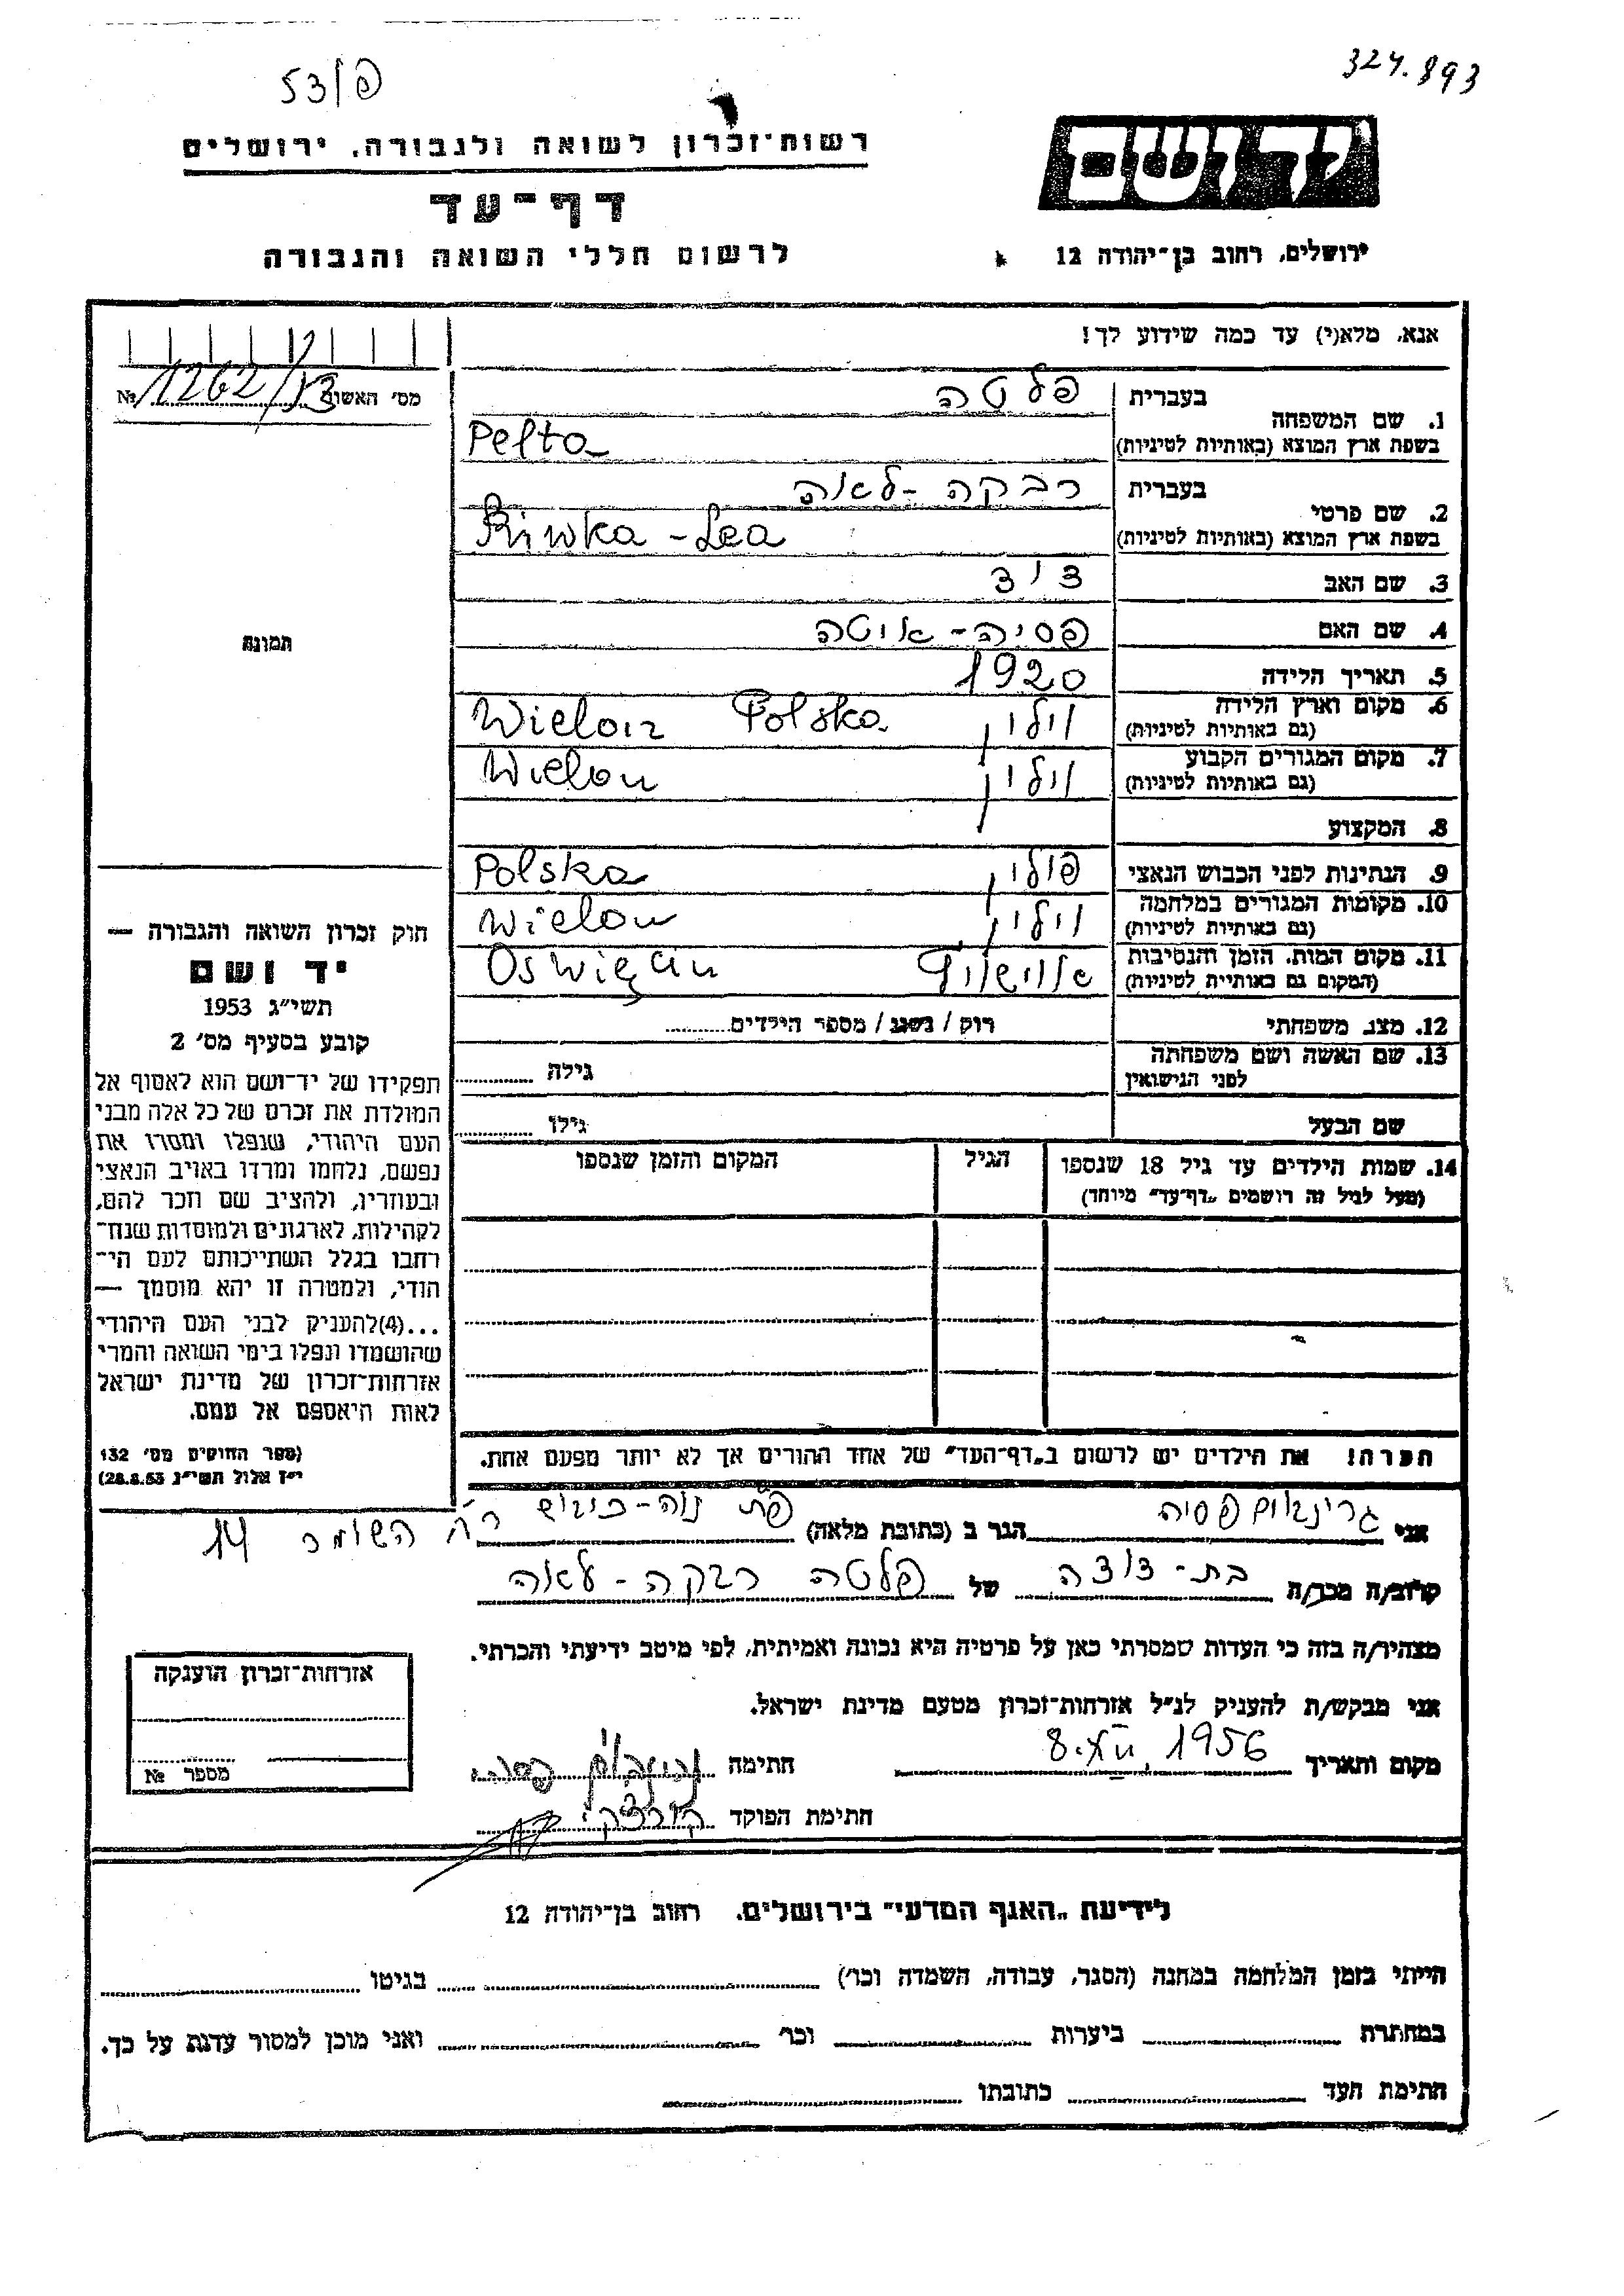 53/פ
324.893
יד ושם
רשות־זכרון לשואה ולגבורה, ירושלים
דף־עד
לרשום חללי השואה והגבורה
ירושלים, רחוב בן־יהודה 12
אנא, מלא(י) עד כמה שידוע לך!
מס׳ האשון 1262/53 №
תמונה
1. שם המשפחה
בעברית פלטה
בשפת ארץ המוצא (באותיות לטיניות) Pelta
2. שם פרטי
בעברית רבקה - לאה
בשפת ארץ המוצא (באותיות לטיניות) Riwka - Lea
3. שם האב דוד
4. שם האם פסיה - איטה
5. תאריך הלידה 1920
6. מקום וארץ הלידה (גם באותיות לטיניות) וילון Wielon Polska
7. מקום המגורים הקבוע (גם באותיות לטיניות) וילון Wielon
8. המקצוע
9. הנתינות לפני הכבוש הנאצי פולין Polska
10. מקומות המגורים במלחמה (גם באותיות לטיניות) וילון Wielon
11. מקום המות, הזמן והנסיבות (המקום גם באותיות לטיניות) אושויץ Oswięcin
12. מצב משפחתי רוק / נשוי / מספר הילדים
13. שם האשה ושם משפחתה לפני הנישואין גילה
שם הבעל גילו
14. שמות הילדים עד גיל 18 שנספו (מעל לגיל זה רושמים „דף־עד” מיוחד) הגיל המקום והזמן שנספו
חוק זכרון השואה והגבורה —
יד ושם
תשי״ג 1953
קובע בסעיף מס׳ 2
תפקידו של יד־ושם הוא לאסוף אל
המולדת את זכרם של כל אלה מבני
העם היהודי, שנפלו ומסרו את
נפשם, נלחמו ומרדו באויב הנאצי
ובעוזריו, ולהציב שם וזכר להם,
לקהילות, לארגונים ולמוסדות שנח־
רבו בגלל השתייכותם לעם הי־
הודי, ולמטרה זו יהא מוסמך —
...(4)להעניק לבני העם היהודי
שהושמדו ונפלו בימי השואה והמרי
אזרחות־זכרון של מדינת ישראל
לאות היאספם אל עמם.
(ספר החוקים מס׳ 132
י״ז אלול תשי״ג 28.8.53)
הערה! את הילדים יש לרשום ב„דף־העד” של אחד ההורים אך לא יותר מפעם אחת.
אני גרינבוים פסיה הגר ב (כתובת מלאה) פת נוה-כיבוש רח׳ השומר 14
קרוב/ה מכר/ה בת - דודה של פלטה רבקה - לאה
מצהיר/ה בזה כי העדות שמסרתי כאן על פרטיה היא נכונה ואמיתית, לפי מיטב ידיעתי והכרתי.
אני מבקש/ת להעניק לנ״ל אזרחות־זכרון מטעם מדינת ישראל.
מקום ותאריך 8.XII.1956 חתימה גרינבוים פסיה
חתימת הפוקד
אזרחות־זכרון הוענקה
מספר №
לידיעת „האגף המדעי” בירושלים, רחוב בן־יהודה 12
הייתי בזמן המלחמה במחנה (הסגר, עבודה, השמדה וכו׳) בגיטו
במחתרת ביערות וכו׳ ואני מוכן למסור עדות על כך.
חתימת העד כתובתו